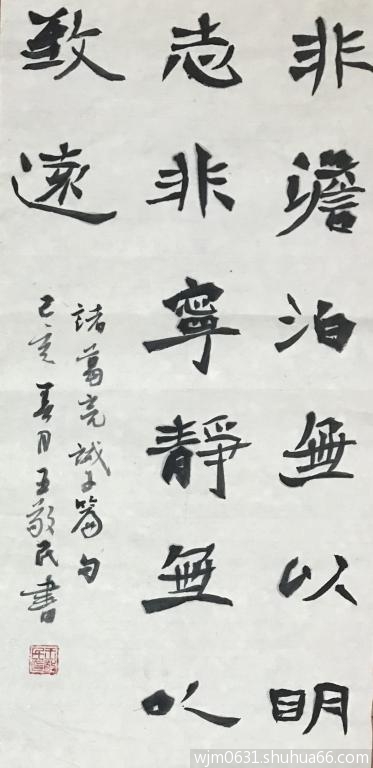 非澹泊無以明
志非寧靜無以
致遠
諸葛亮誡子篇句
己亥春月王敬民書
@wjm0631.shuhua66.com